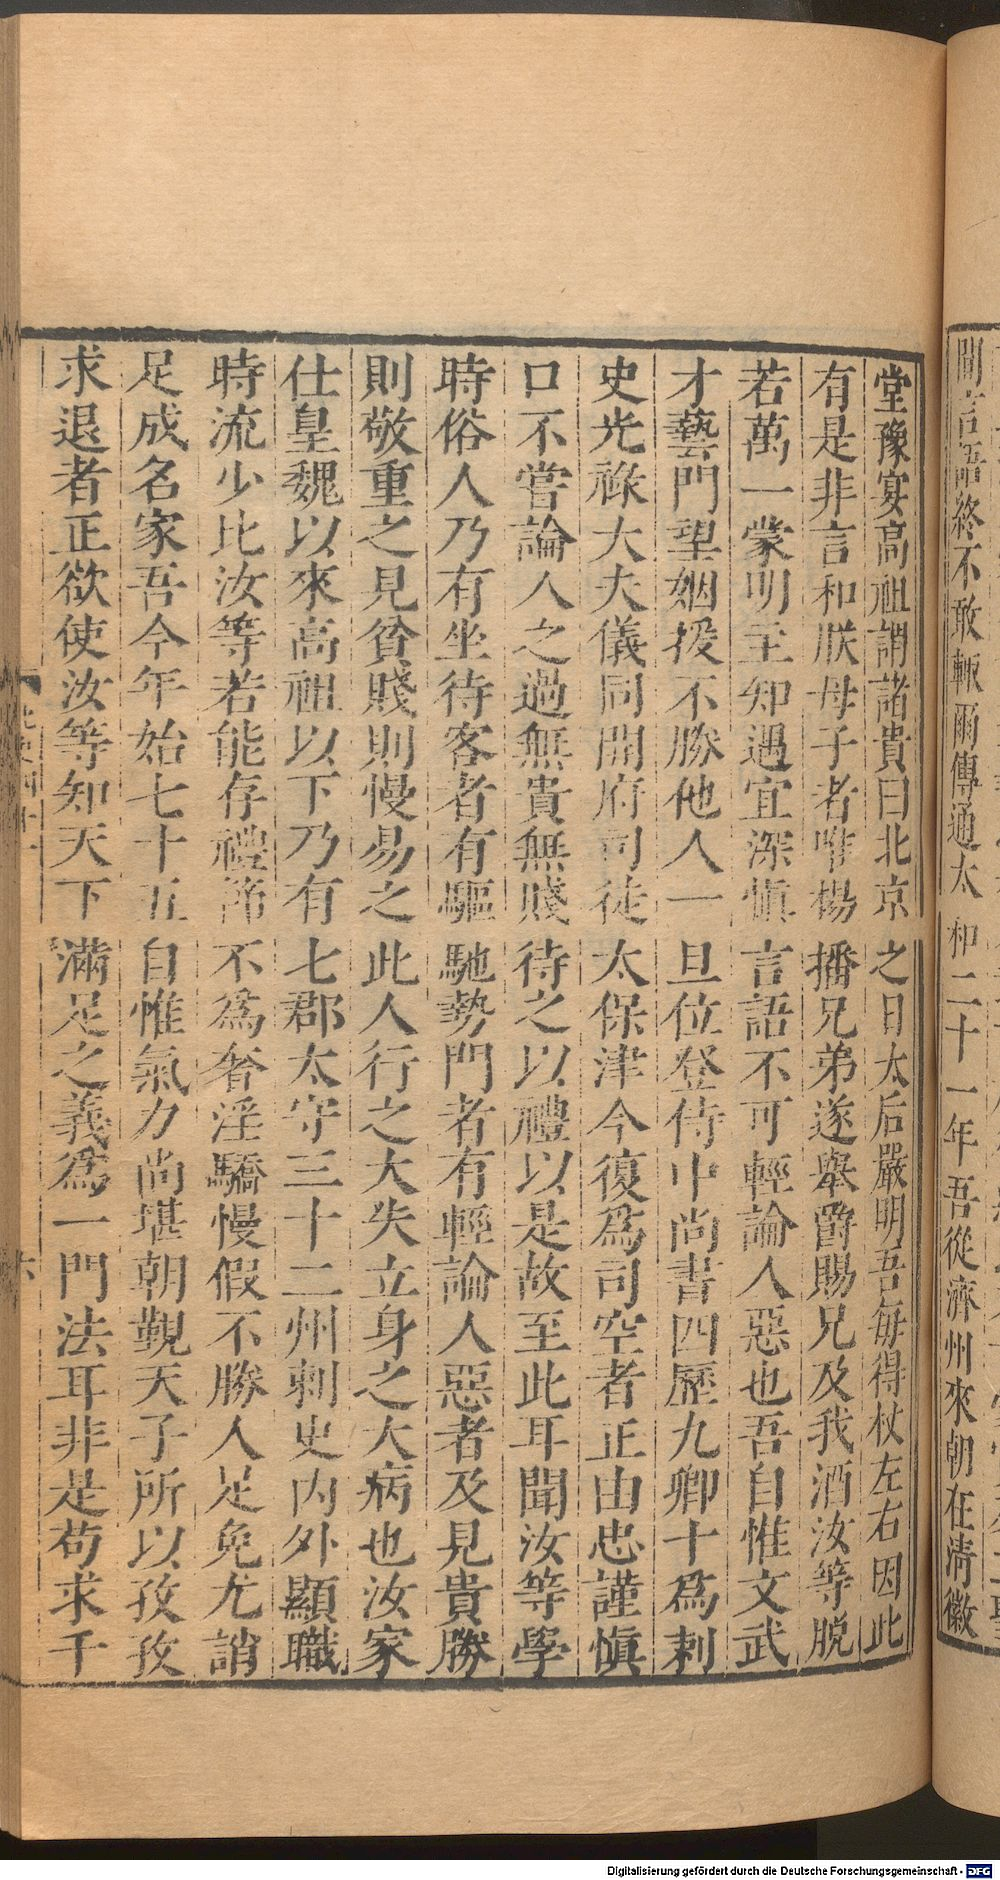 間言語終不敢輒爾傳通太和二十一年吾從濟州來朝在清徽
堂豫宴高祖謂諸貴曰北京之日太后嚴明吾每得杖左右因此
有是非言和朕母子者唯楊播兄弟遂舉爵賜兄及我酒汝等脫
若萬一蒙明主知遇宜深慎言語不可輕論人惡也吾自惟文武
才藝門望姻援不勝他人一旦位登侍中尚書四歷九卿十爲刺
史光祿大夫儀同開府司徒太保津今復爲司空者正由忠謹慎
口不嘗論人之過無貴無賤待之以禮以是故至此耳聞汝等學
時俗人乃有坐待客者有驅馳勢門者有輕論人惡者及見貴勝
則敬重之見貧賤則慢易之此人行之大失立身之大病也汝家
仕皇魏以來高祖以下乃有七郡太守三十二州刺史內外顯職
時流少比汝等若能存禮節不爲奢淫驕慢假不勝人足免尤誚
足成名家吾今年始七十五自惟氣力尚堪朝覲天子所以孜孜
求退者正欲使汝等知天下滿足之義爲一門法耳非是苟求千
Digitalisierung gefördert durch die Deutsche Forschungsgemeinschaft - DFG